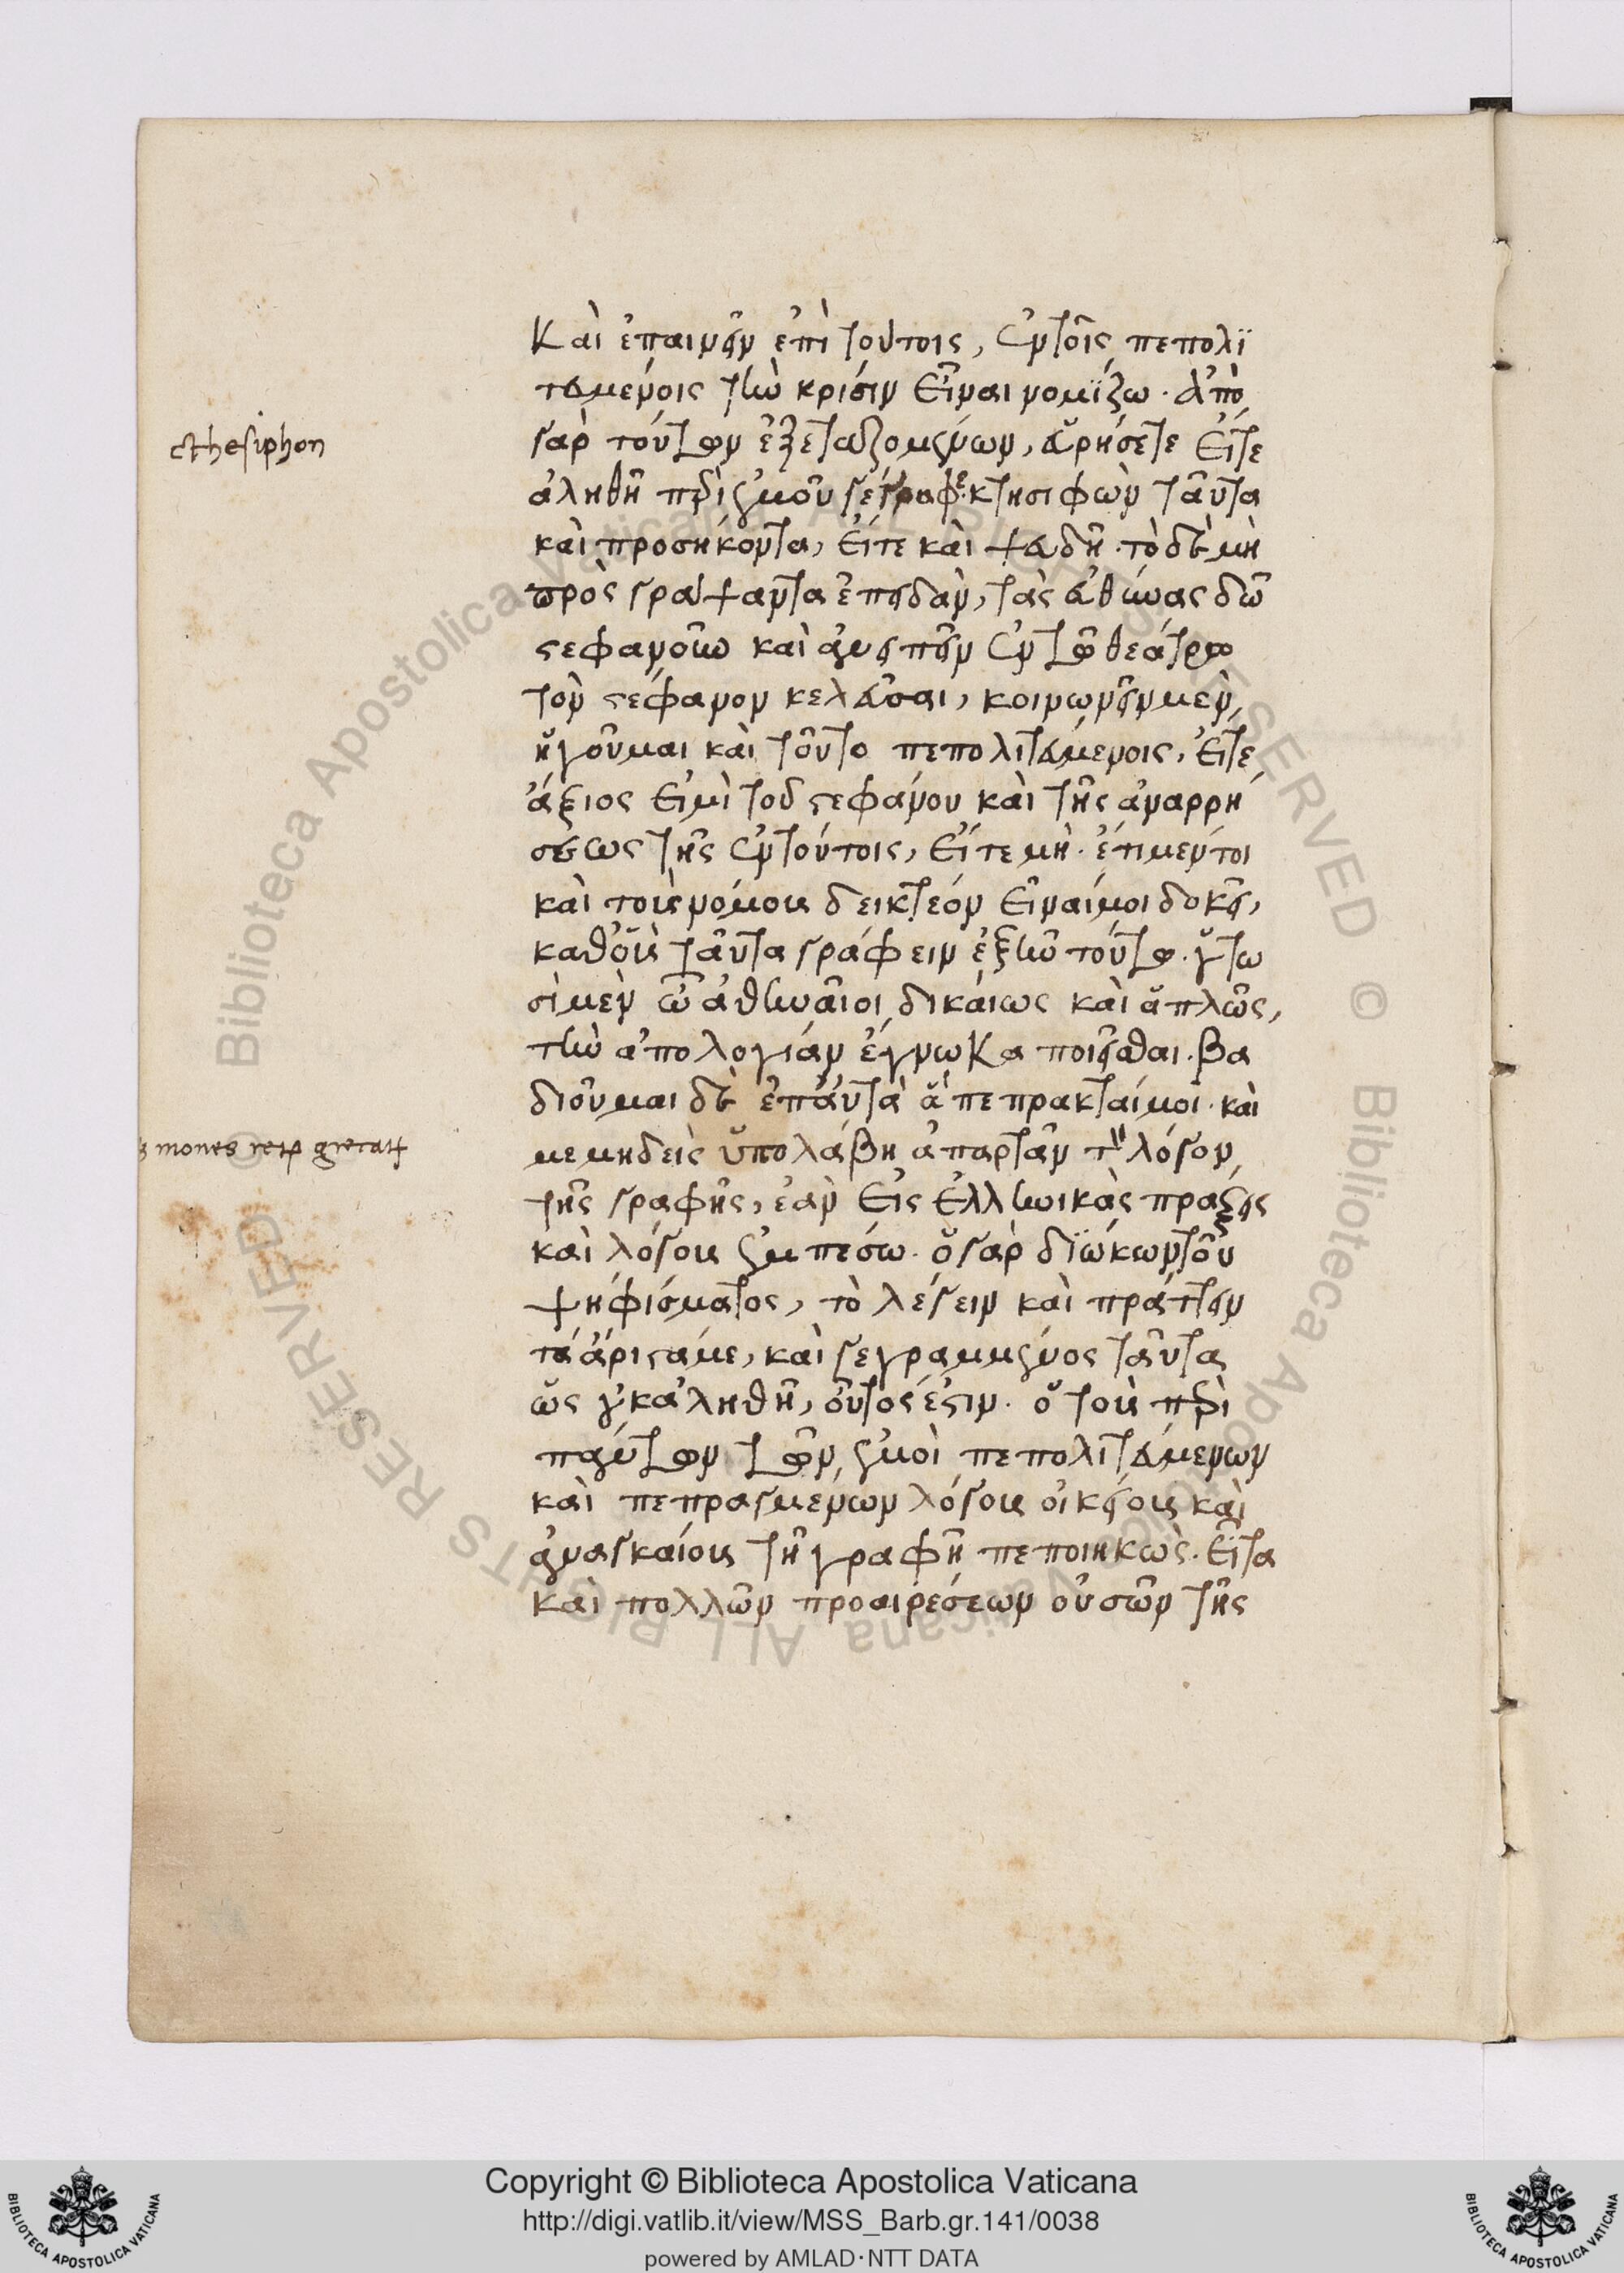 Καὶ ἐπαινεῖν ἐπὶ τούτοις, ἐν τοῖς πεπολϊ
τευμένοις τὴν κρίσιν εἶναι νομίζω. ἀπὸ
cthesiphon
γὰρ τούτων ἐξεταζομένων, εὑρήσετε εἴτε
ἀληθῆ περὶ ἐμοῦ γέγραφε κτησιφῶν ταῦτα
καὶ προσήκοντα, εἴτε καὶ ψευδῆ. τὸ δὲ μὴ
πρὸς γράψαντα ἐπειδὰν, τὰς εὐθύνας δῶ
στεφανοῦν καὶ ἀνειπεῖν ἐν τῶ θεάτρω
τὸν στέφανον κελεῦσαι, κοινωνεῖν μὲν
ἡγοῦμαι καὶ τοῦτο πεπολιτευμένοις, εἴτε
ἄξιος εἰμὶ τοῦ στεφάνου καὶ τῆς ἀναρρή
σεως τῆς ἐν τούτοις, εἴτε μὴ. ἔτι μέντοι
καὶ τοὺς νόμους δεικτέον εἶναί μοι δοκεῖ,
καθ' οὓς ταῦτα γράφειν ἐξῆν τούτω. οὕτω
σὶ μὲν ὦ ἀθηναῖοι δικαίως καὶ ἁπλῶς,
τὴν ἀπολογίαν ἔγνωκα ποιεῖσθαι. βα
διοῦμαι δὲ ἐπ' αὐτὰ ἃ πέπρακταί μοι. καὶ
με μηδεὶς ὑπολάβη ἀπαρτᾶν τὸν λόγον
τῆς γραφῆς, ἐὰν εἰς ἑλληνικὰς πράξεις
καὶ λόγους ἐμπέσω. ὁ γὰρ διώκων τοῦ
ψηφίσματος, τὸ λέγειν καὶ πράττειν
τὰ ἄριστά με, καὶ γεγραμμένος ταῦτα
ὡς οὐκ ἀληθῆ, οὗτός ἐστιν. ὁ τοὺς περὶ
πάντων τῶν ἐμοὶ πεπολιτευμένων
καὶ πεπραγμένων λόγους οἰκείους καὶ
ἀναγκαίους τῆ γραφῆ πεποιηκὼς. εἶτα
καὶ πολλῶν προαιρέσεων οὐσῶν τῆς
Copyright © Biblioteca Apostolica Vaticana
http://digi.vatlib.it/view/MSS_Barb.gr.141/0038
powered by AMLAD·NTT DATA
BIBLIOTECA APOSTOLICA VATICANA
BIBLIOTECA APOSTOLICA VATICANA